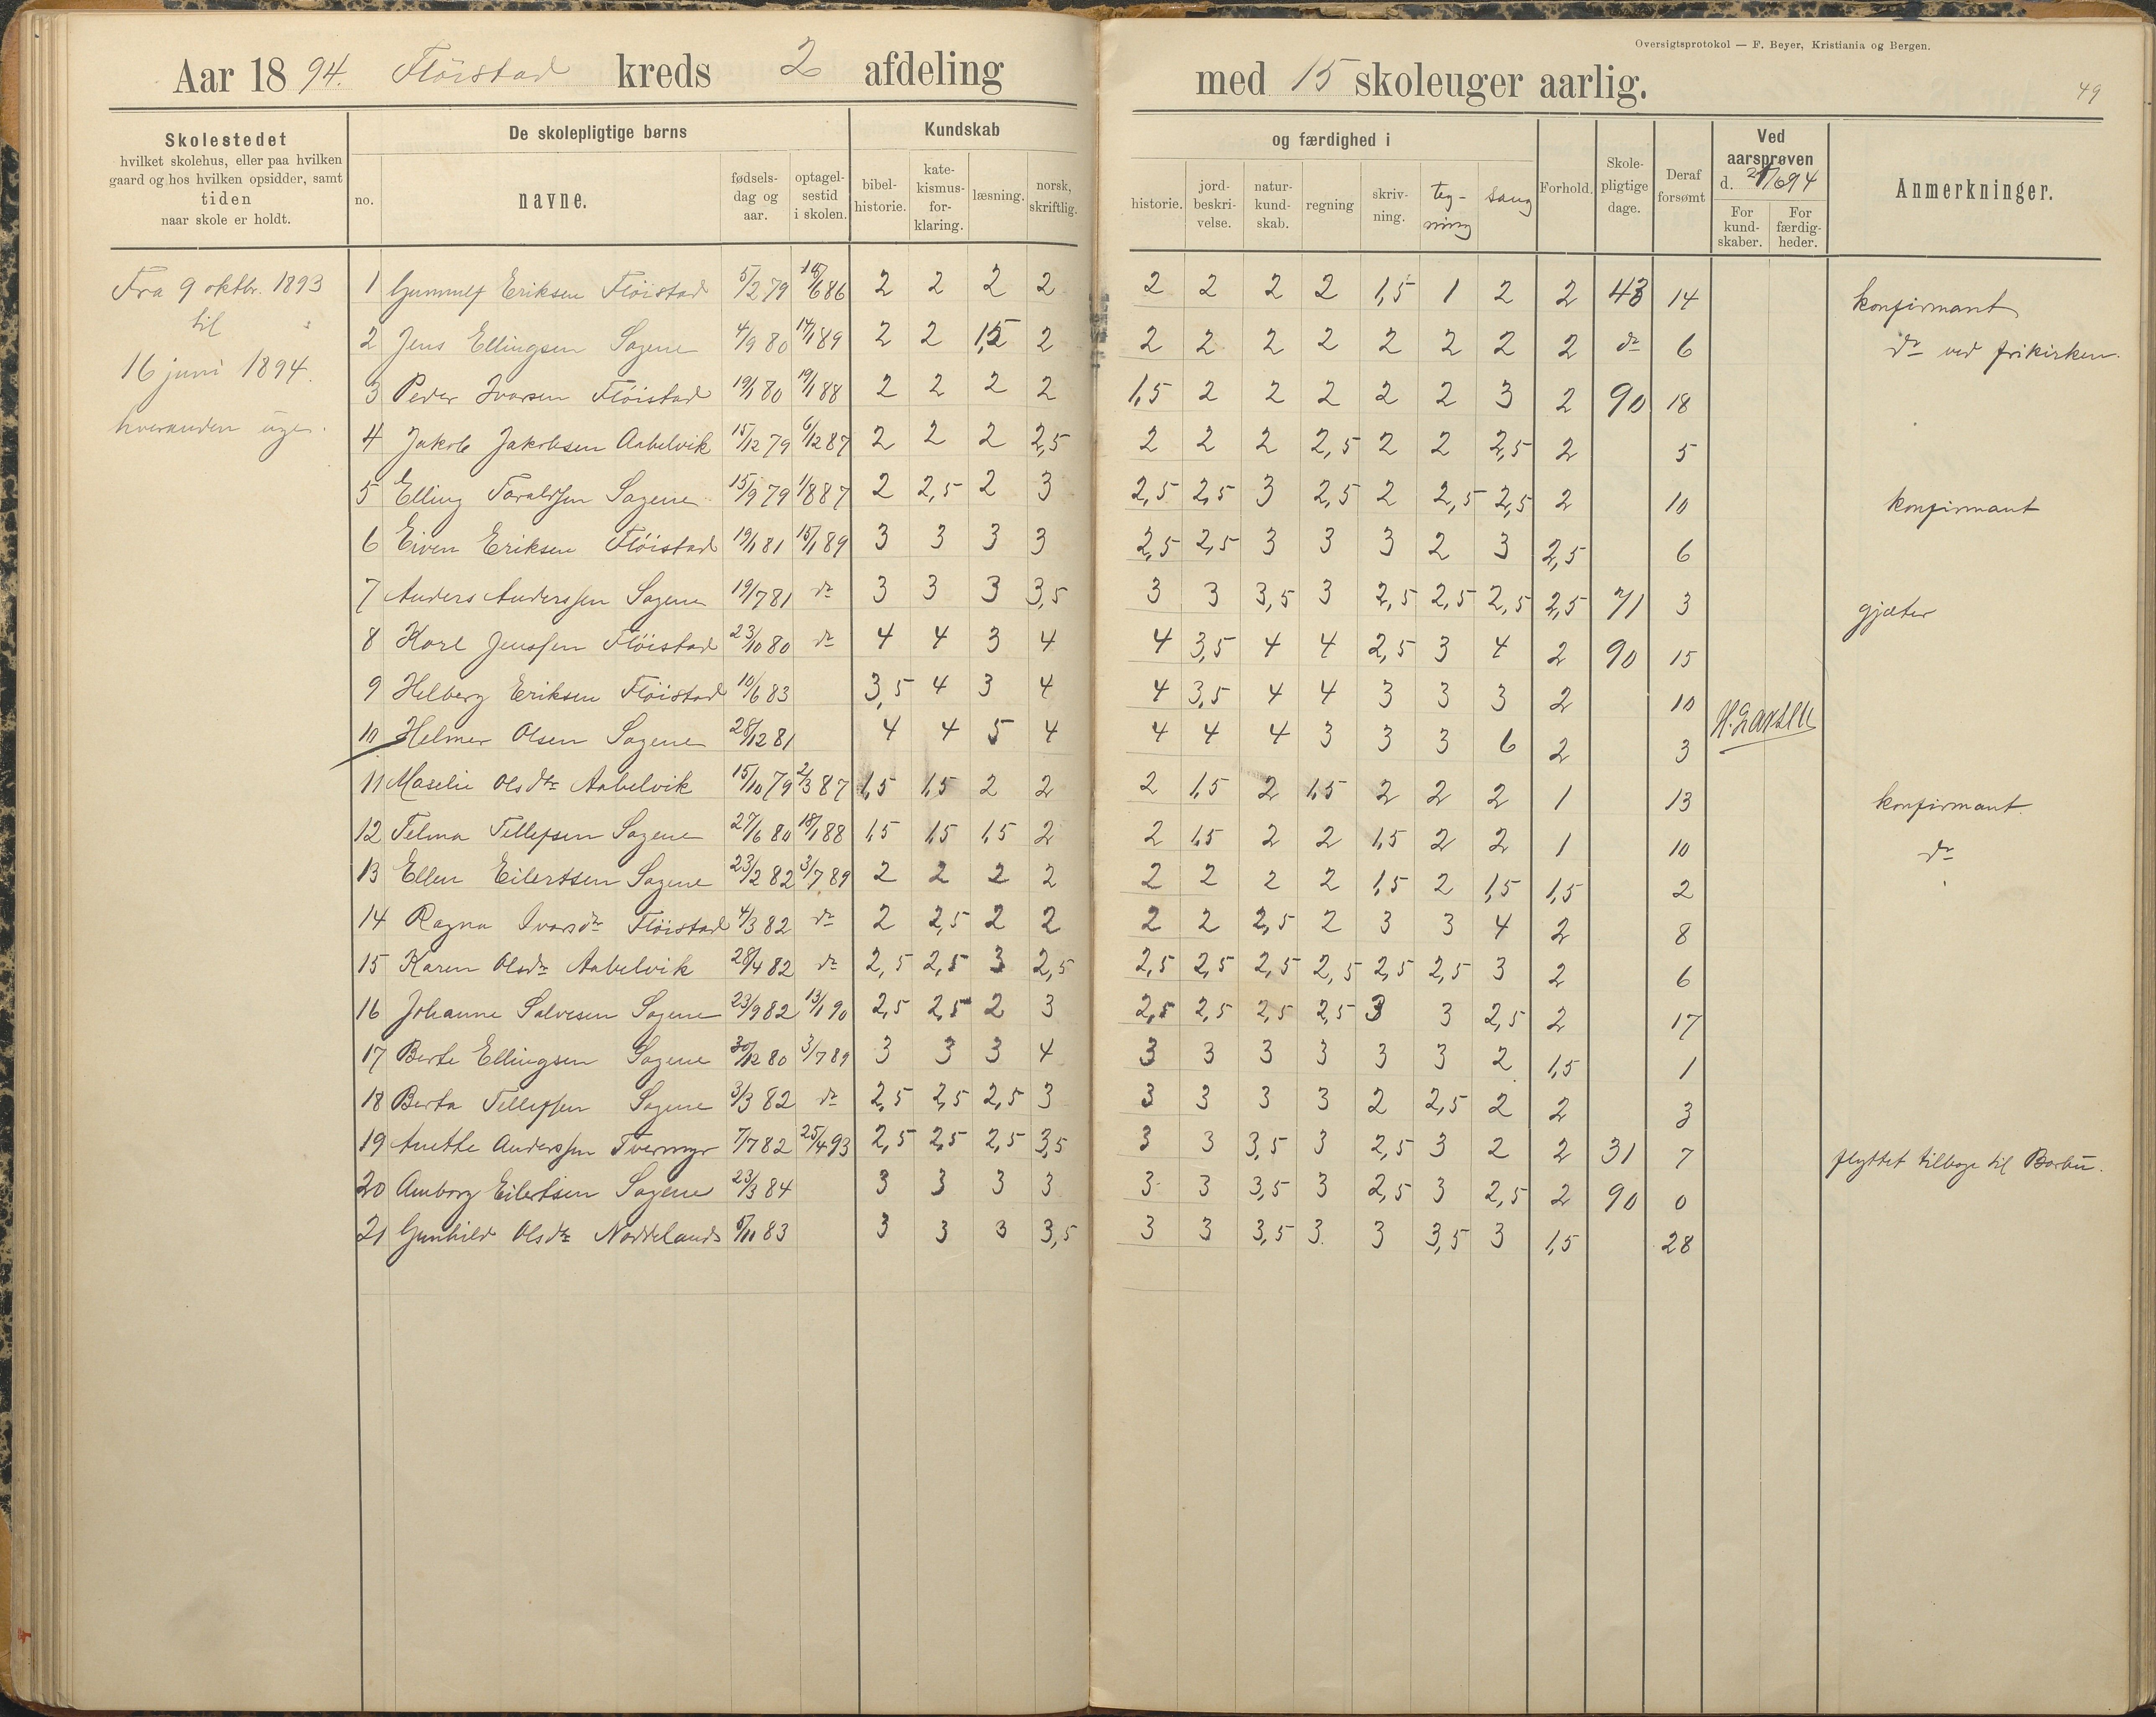 Oversigtsprotokol — F. Beyer, Kristiania og Bergen.
Aar 1894. Flöistad kreds 2 afdeling med 15 skoleuger aarlig.
49
Skolestedet
hvilket skolehus, eller paa hvilken
gaard og hos hvilken opsidder, samt
tiden
naar skole er holdt.
De skolepligtige børns
no.
navne.
fødsels-
dag og
aar.
optagel-
sestid
i skolen.
Kundskab og færdighed i
bibel-
historie.
kate-
kismus-
for-
klaring.
læsning.
norsk,
skriftlig.
historie.
jord-
beskri-
velse.
natur-
kund-
skab.
regning
skriv-
ning.
teg-
ning
sang
Forhold.
Skole-
pligtige
dage.
Deraf
forsømt
Ved
aarsprøven
d. 21/6 94
For
kund-
skaber.
For
færdig-
heder.
Anmerkninger.
Fra 9 oktbr. 1893
til
16 juni 1894.
hveranden uge.
1 Gunnulf Eriksen Flöistad 5/2 79 16/6 86 2 2 2 2 2 2 2 2 1,5 1 2 2 43 14 konfirmant
2 Jens Ellingsen Sagene 4/9 80 14/1 89 2 2 1,5 2 2 2 2 2 2 2 2 2 do 6 do ved frikirken.
3 Peder Ivarsen Flöistad 19/1 80 19/1 88 2 2 2 2 1,5 2 2 2 2 2 3 2 90 18
4 Jakob Jakobsen Aabelvik 15/12 79 6/12 87 2 2 2 2,5 2 2 2 2,5 2 2 2,5 2 5
5 Elling Taraldsen Sagene 15/9 79 1/8 87 2 2,5 2 3 2,5 2,5 3 2,5 2 2,5 2,5 2 10 konfirmant
6 Eiven Eriksen Flöistad 19/1 81 15/1 89 3 3 3 3 2,5 2,5 3 3 3 2 3 2,5 6
7 Anders Anderssen Sagene 19/7 81 do 3 3 3 3,5 3 3 3,5 3 2,5 2,5 2,5 2,5 71 3 gjæter
8 Karl Jenssen Flöistad 23/10 80 do 4 4 3 4 4 3,5 4 4 2,5 3 4 2 90 15
9 Helberg Eriksen Flöistad 10/6 83 3,5 4 3 4 4 3,5 4 4 3 3 3 2 10
10 Helmer Olsen Sagene 28/12 81 4 4 5 4 4 4 4 3 3 3 6 2 3 H. Larsen
11 Maselie Olsdtr Aabelvik 15/10 79 2/3 87 1,5 1,5 2 2 2 1,5 2 1,5 2 2 2 1 13 konfirmant.
12 Telma Tellefsen Sagene 27/6 80 18/1 88 1,5 1,5 1,5 2 2 1,5 2 2 1,5 2 2 1 10 do
13 Ellen Eilertsen Sagene 23/2 82 3/7 89 2 2 2 2 2 2 2 2 1,5 2 1,5 1,5 2
14 Ragna Ivarsdr Flöistad 4/3 82 do 2 2,5 2 2 2 2 2,5 2 3 3 4 2 8
15 Karen Olsdr Aabelvik 28/4 82 do 2,5 2,5 3 2,5 2,5 2,5 2,5 2,5 2,5 2,5 3 2 6
16 Johanne Salvesen Sagene 23/9 82 13/1 90 2,5 2,5 2 3 2,5 2,5 2,5 2,5 3 3 2,5 2 17
17 Berte Ellingsen Sagene 30/12 80 3/7 89 3 3 3 4 3 3 3 3 3 3 2 1,5 1
18 Berta Tellefsen Sagene 3/3 82 do 2,5 2,5 2,5 3 3 3 3 3 2 2,5 2 2 3
19 Anethe Anderssen Tvermyr 7/7 82 25/4 93 2,5 2,5 2,5 3,5 3 3 3,5 3 2,5 3 2 2 31 7 flyttet tilbage til Barbu.
20 Amborg Eilertsen Sagene 23/3 84 3 3 3 3 3 3 3,5 3 2,5 3 2,5 2 90 0
21 Gunhild Olsdtr Noddelands 5/11 83 3 3 3 3,5 3 3 3,5 3 3 3,5 3 1,5 28